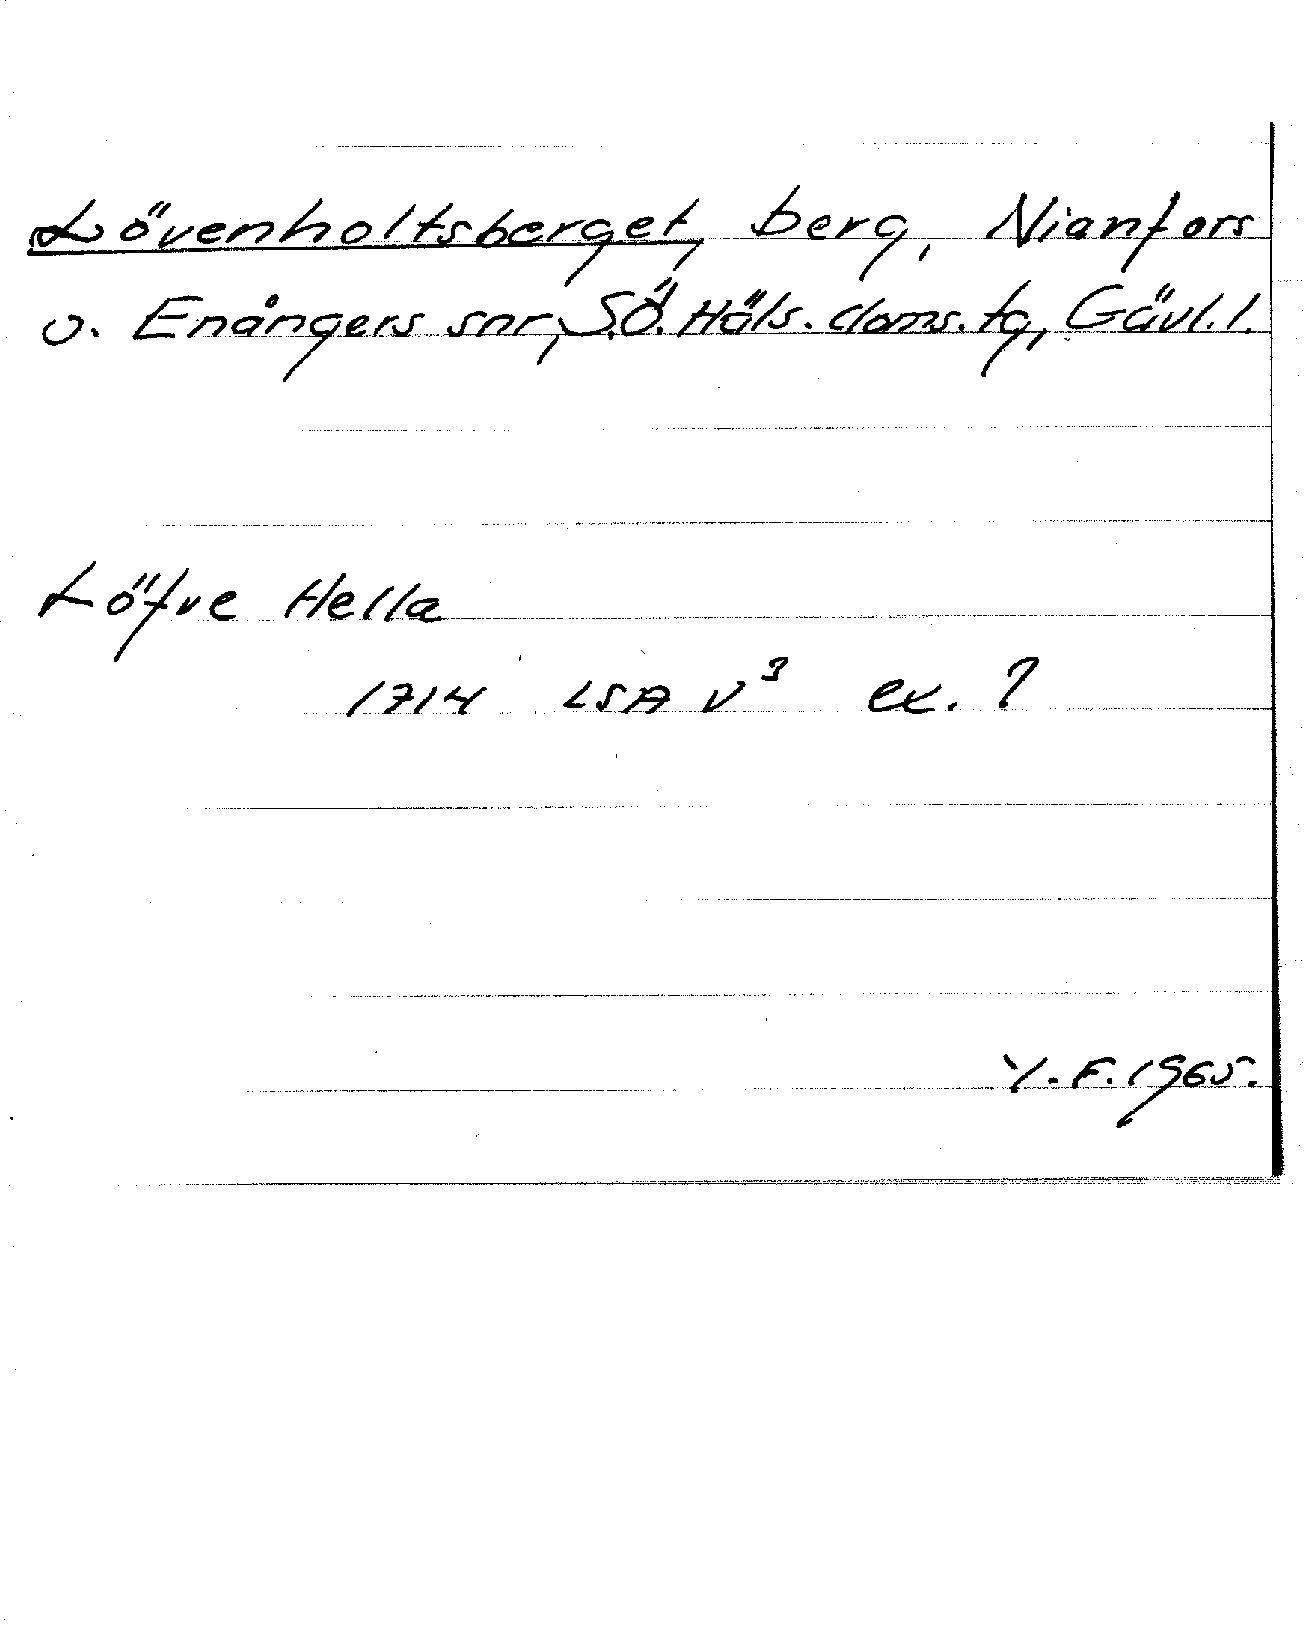 Lövenholtsberget, berg, Nianfors
o. Enångers snr, S.Ö. Häls. doms. tg, Gävl. l.
Löfve Hella
1714 LSA V³ ex. ?
Y. F. 1965.